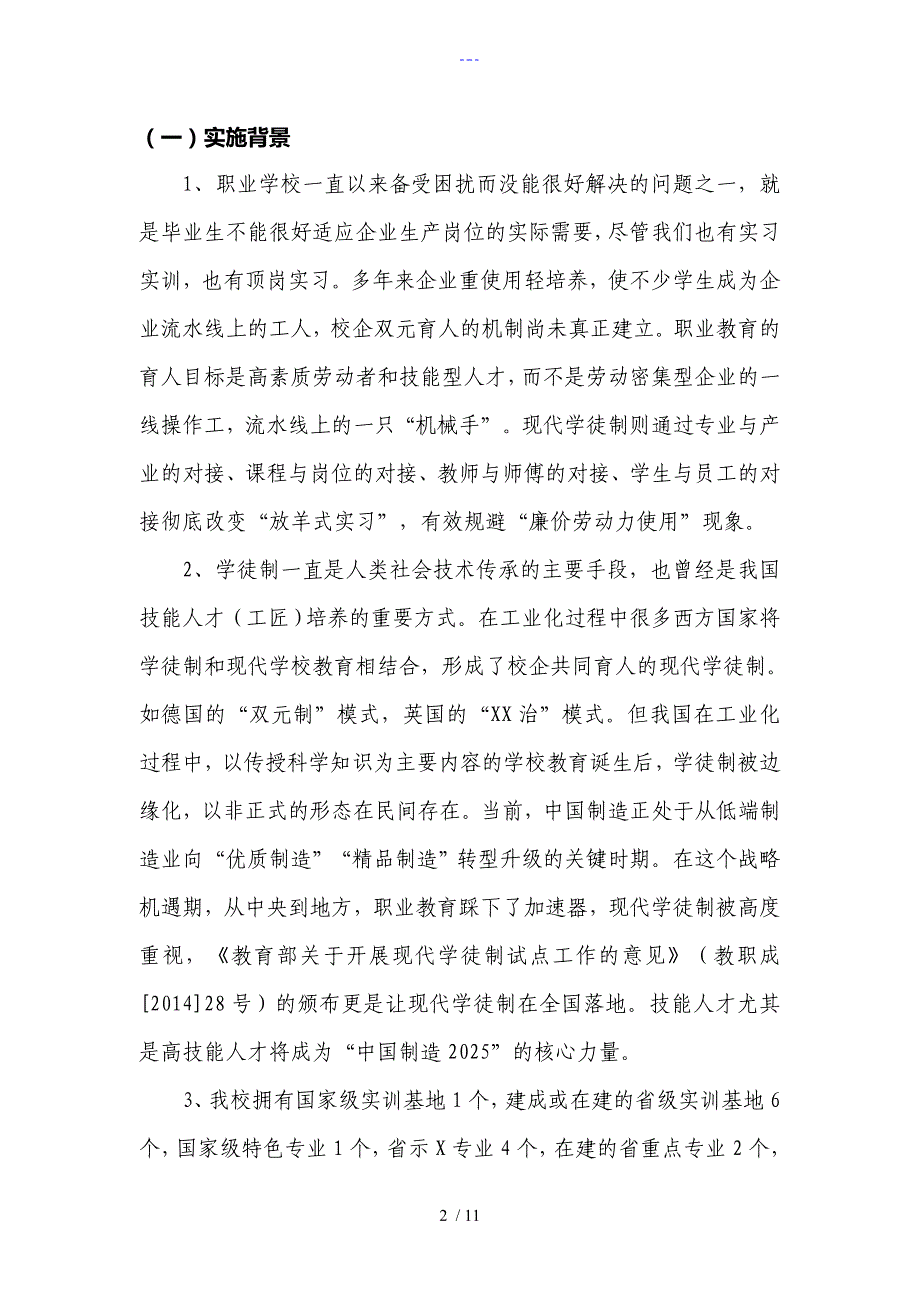 ---
（一）实施背景
1、职业学校一直以来备受困扰而没能很好解决的问题之一，就
是毕业生不能很好适应企业生产岗位的实际需要，尽管我们也有实习
实训，也有顶岗实习。多年来企业重使用轻培养，使不少学生成为企
业流水线上的工人，校企双元育人的机制尚未真正建立。职业教育的
育人目标是高素质劳动者和技能型人才，而不是劳动密集型企业的一
线操作工，流水线上的一只“机械手”。现代学徒制则通过专业与产
业的对接、课程与岗位的对接、教师与师傅的对接、学生与员工的对
接彻底改变“放羊式实习”，有效规避“廉价劳动力使用”现象。
2、学徒制一直是人类社会技术传承的主要手段，也曾经是我国
技能人才（工匠）培养的重要方式。在工业化过程中很多西方国家将
学徒制和现代学校教育相结合，形成了校企共同育人的现代学徒制。
如德国的“双元制”模式，英国的“XX治”模式。但我国在工业化
过程中，以传授科学知识为主要内容的学校教育诞生后，学徒制被边
缘化，以非正式的形态在民间存在。当前，中国制造正处于从低端制
造业向“优质制造”“精品制造”转型升级的关键时期。在这个战略
机遇期，从中央到地方，职业教育踩下了加速器，现代学徒制被高度
重视，《教育部关于开展现代学徒制试点工作的意见》（教职成
[2014]28号）的颁布更是让现代学徒制在全国落地。技能人才尤其
是高技能人才将成为“中国制造2025”的核心力量。
3、我校拥有国家级实训基地1个，建成或在建的省级实训基地6
个，国家级特色专业1个，省示X专业4个，在建的省重点专业2个，
2 / 11